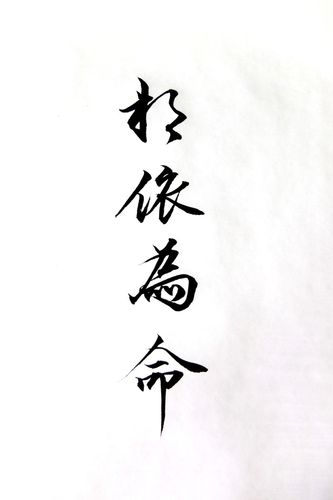 相依為命